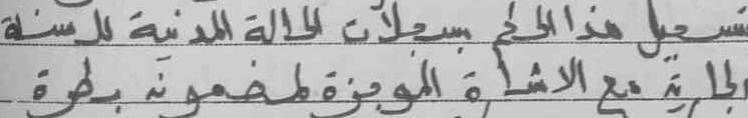 تسجيل هذا الحكم بسجلات الحالة المدنية للسنة
الجارية مع الاشارة الموجزة لمضمونه بطرة